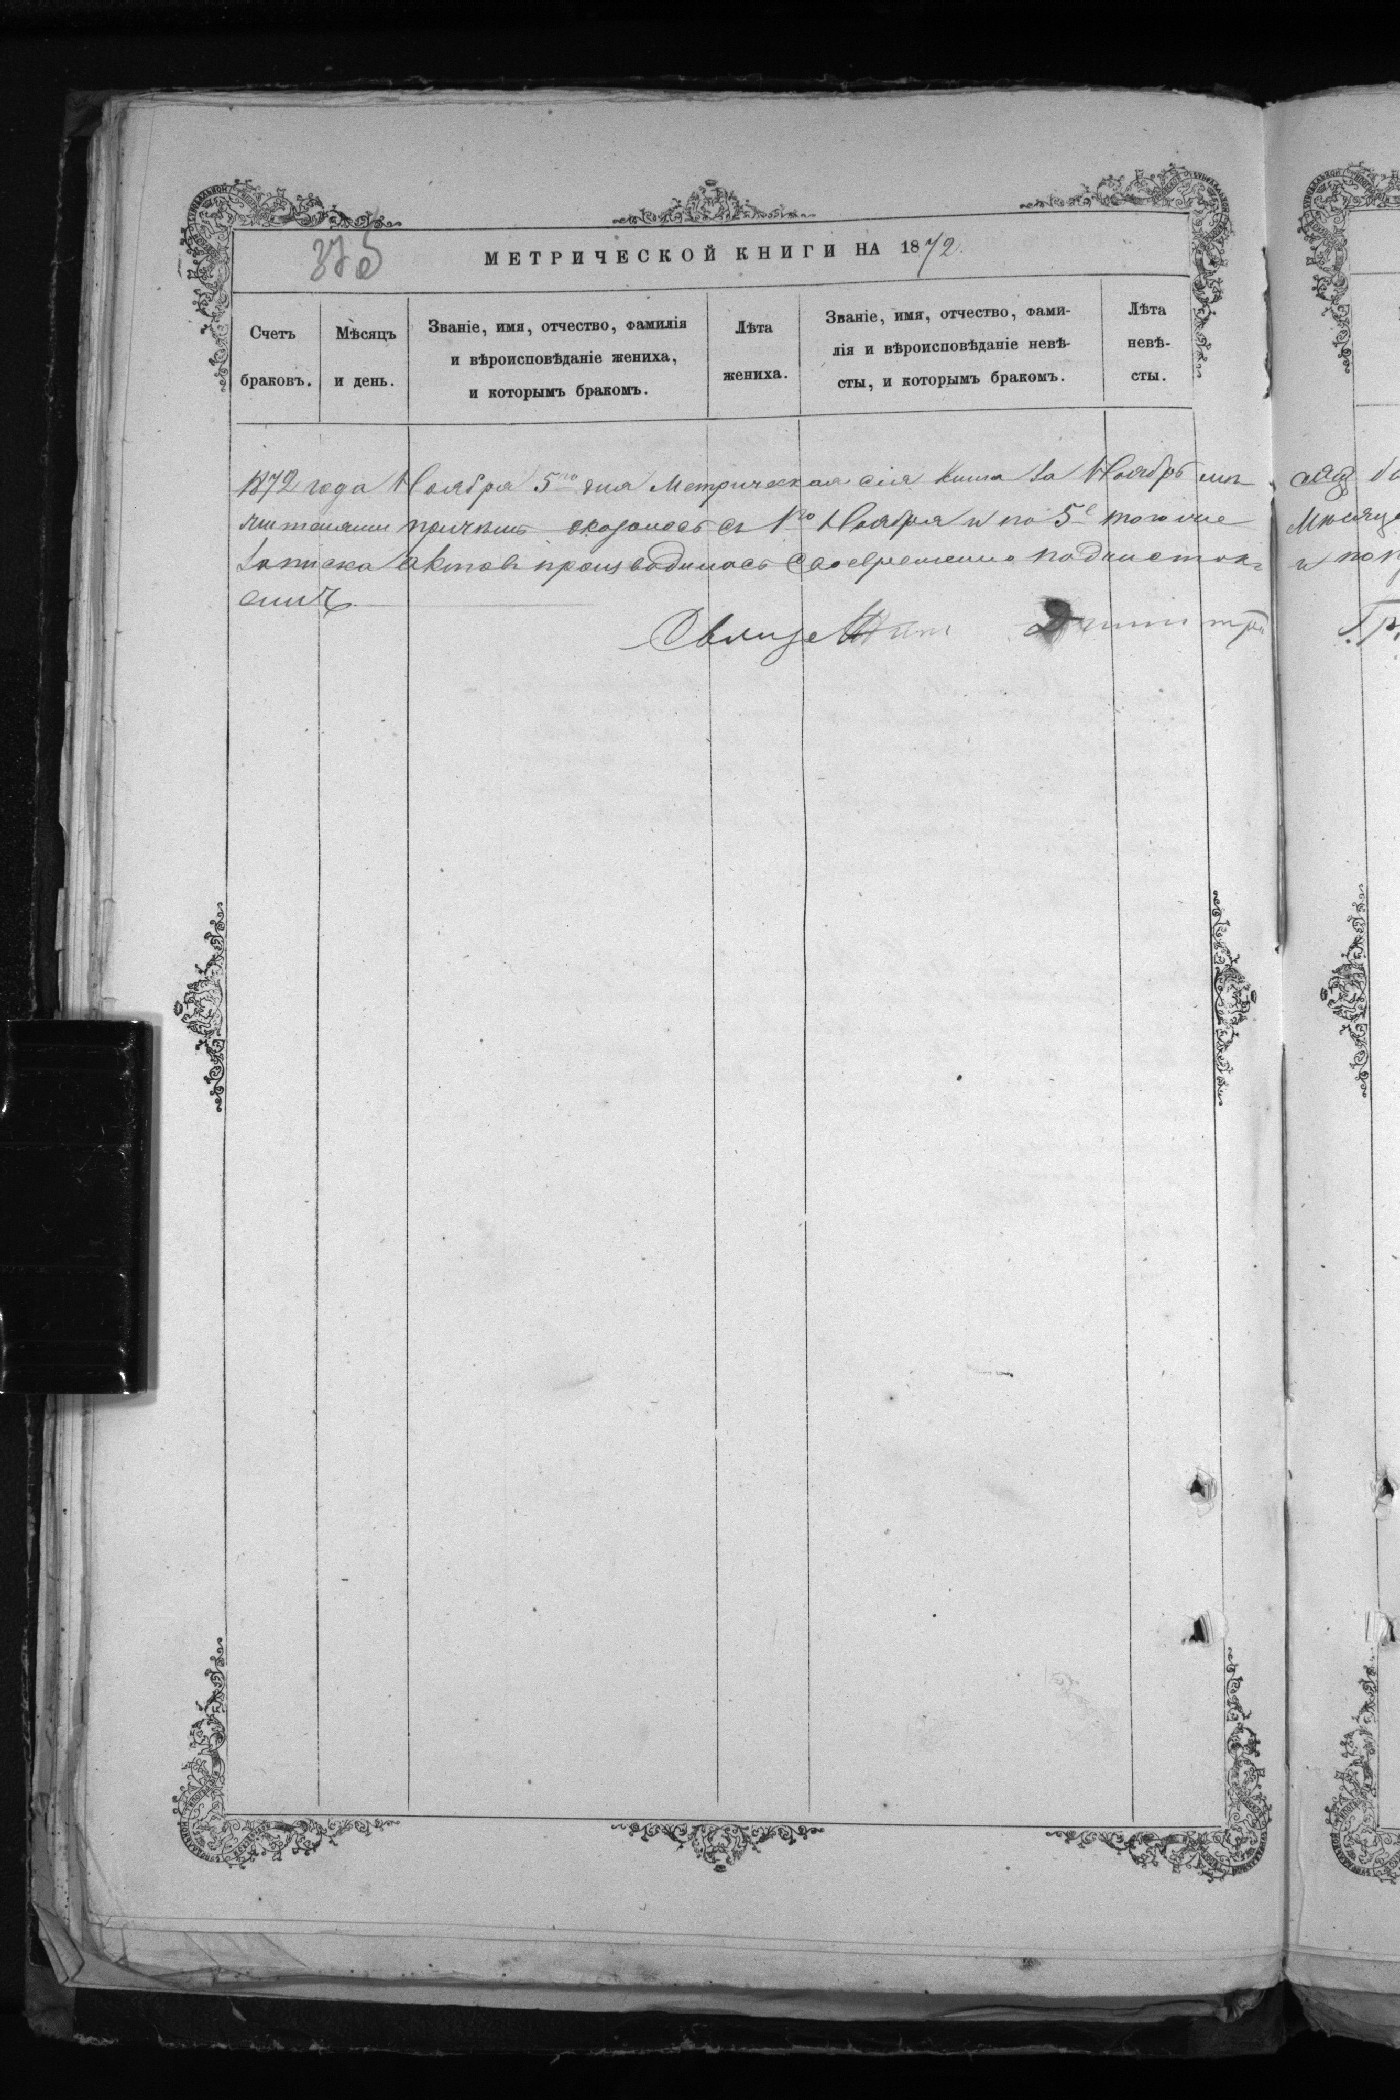 375
МЕТРИЧЕСКОЙ КНИГИ НА 1872.
Счетъ браковъ.
Мѣсяцъ и день.
Званіе, имя, отчество, фамилія
и вѣроисповѣданіе жениха,
и которымъ бракомъ.
Лѣта жениха.
Званіе, имя, отчество, фами-
лія и вѣроисповѣданіе невѣ-
сты, и которымъ бракомъ.
Лѣта невѣ-
сты.
1872 года Ноября 5го дня Метрическая сія книга за Ноябрь мѣ-
сяцъ
читаніи причтъ оказалось съ 1го Ноября и по 5е того же
Мѣсяца
Записка актовъ производилась своевременно
и
Священникъ Димитрі